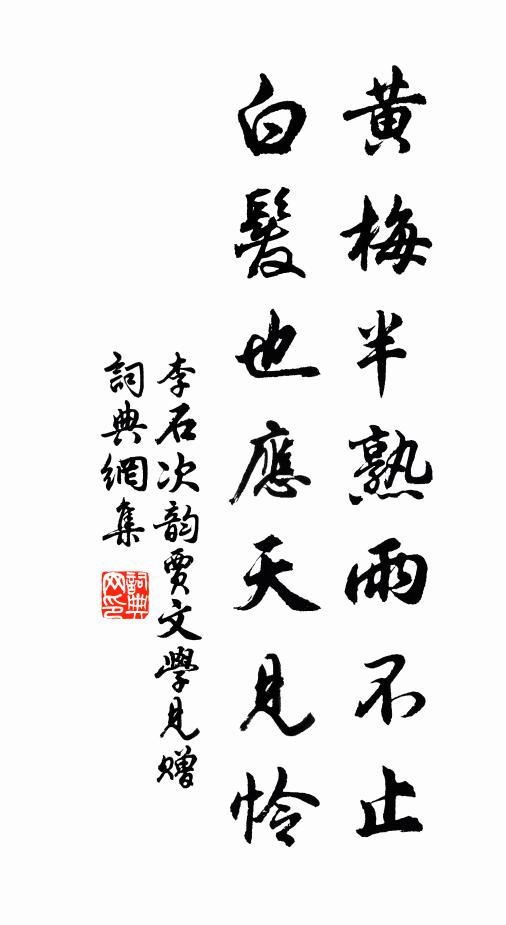 黄梅半熟雨不止
白髮也應天見怜
李石次韵賈文學見赠
詞典網集
詞典網印